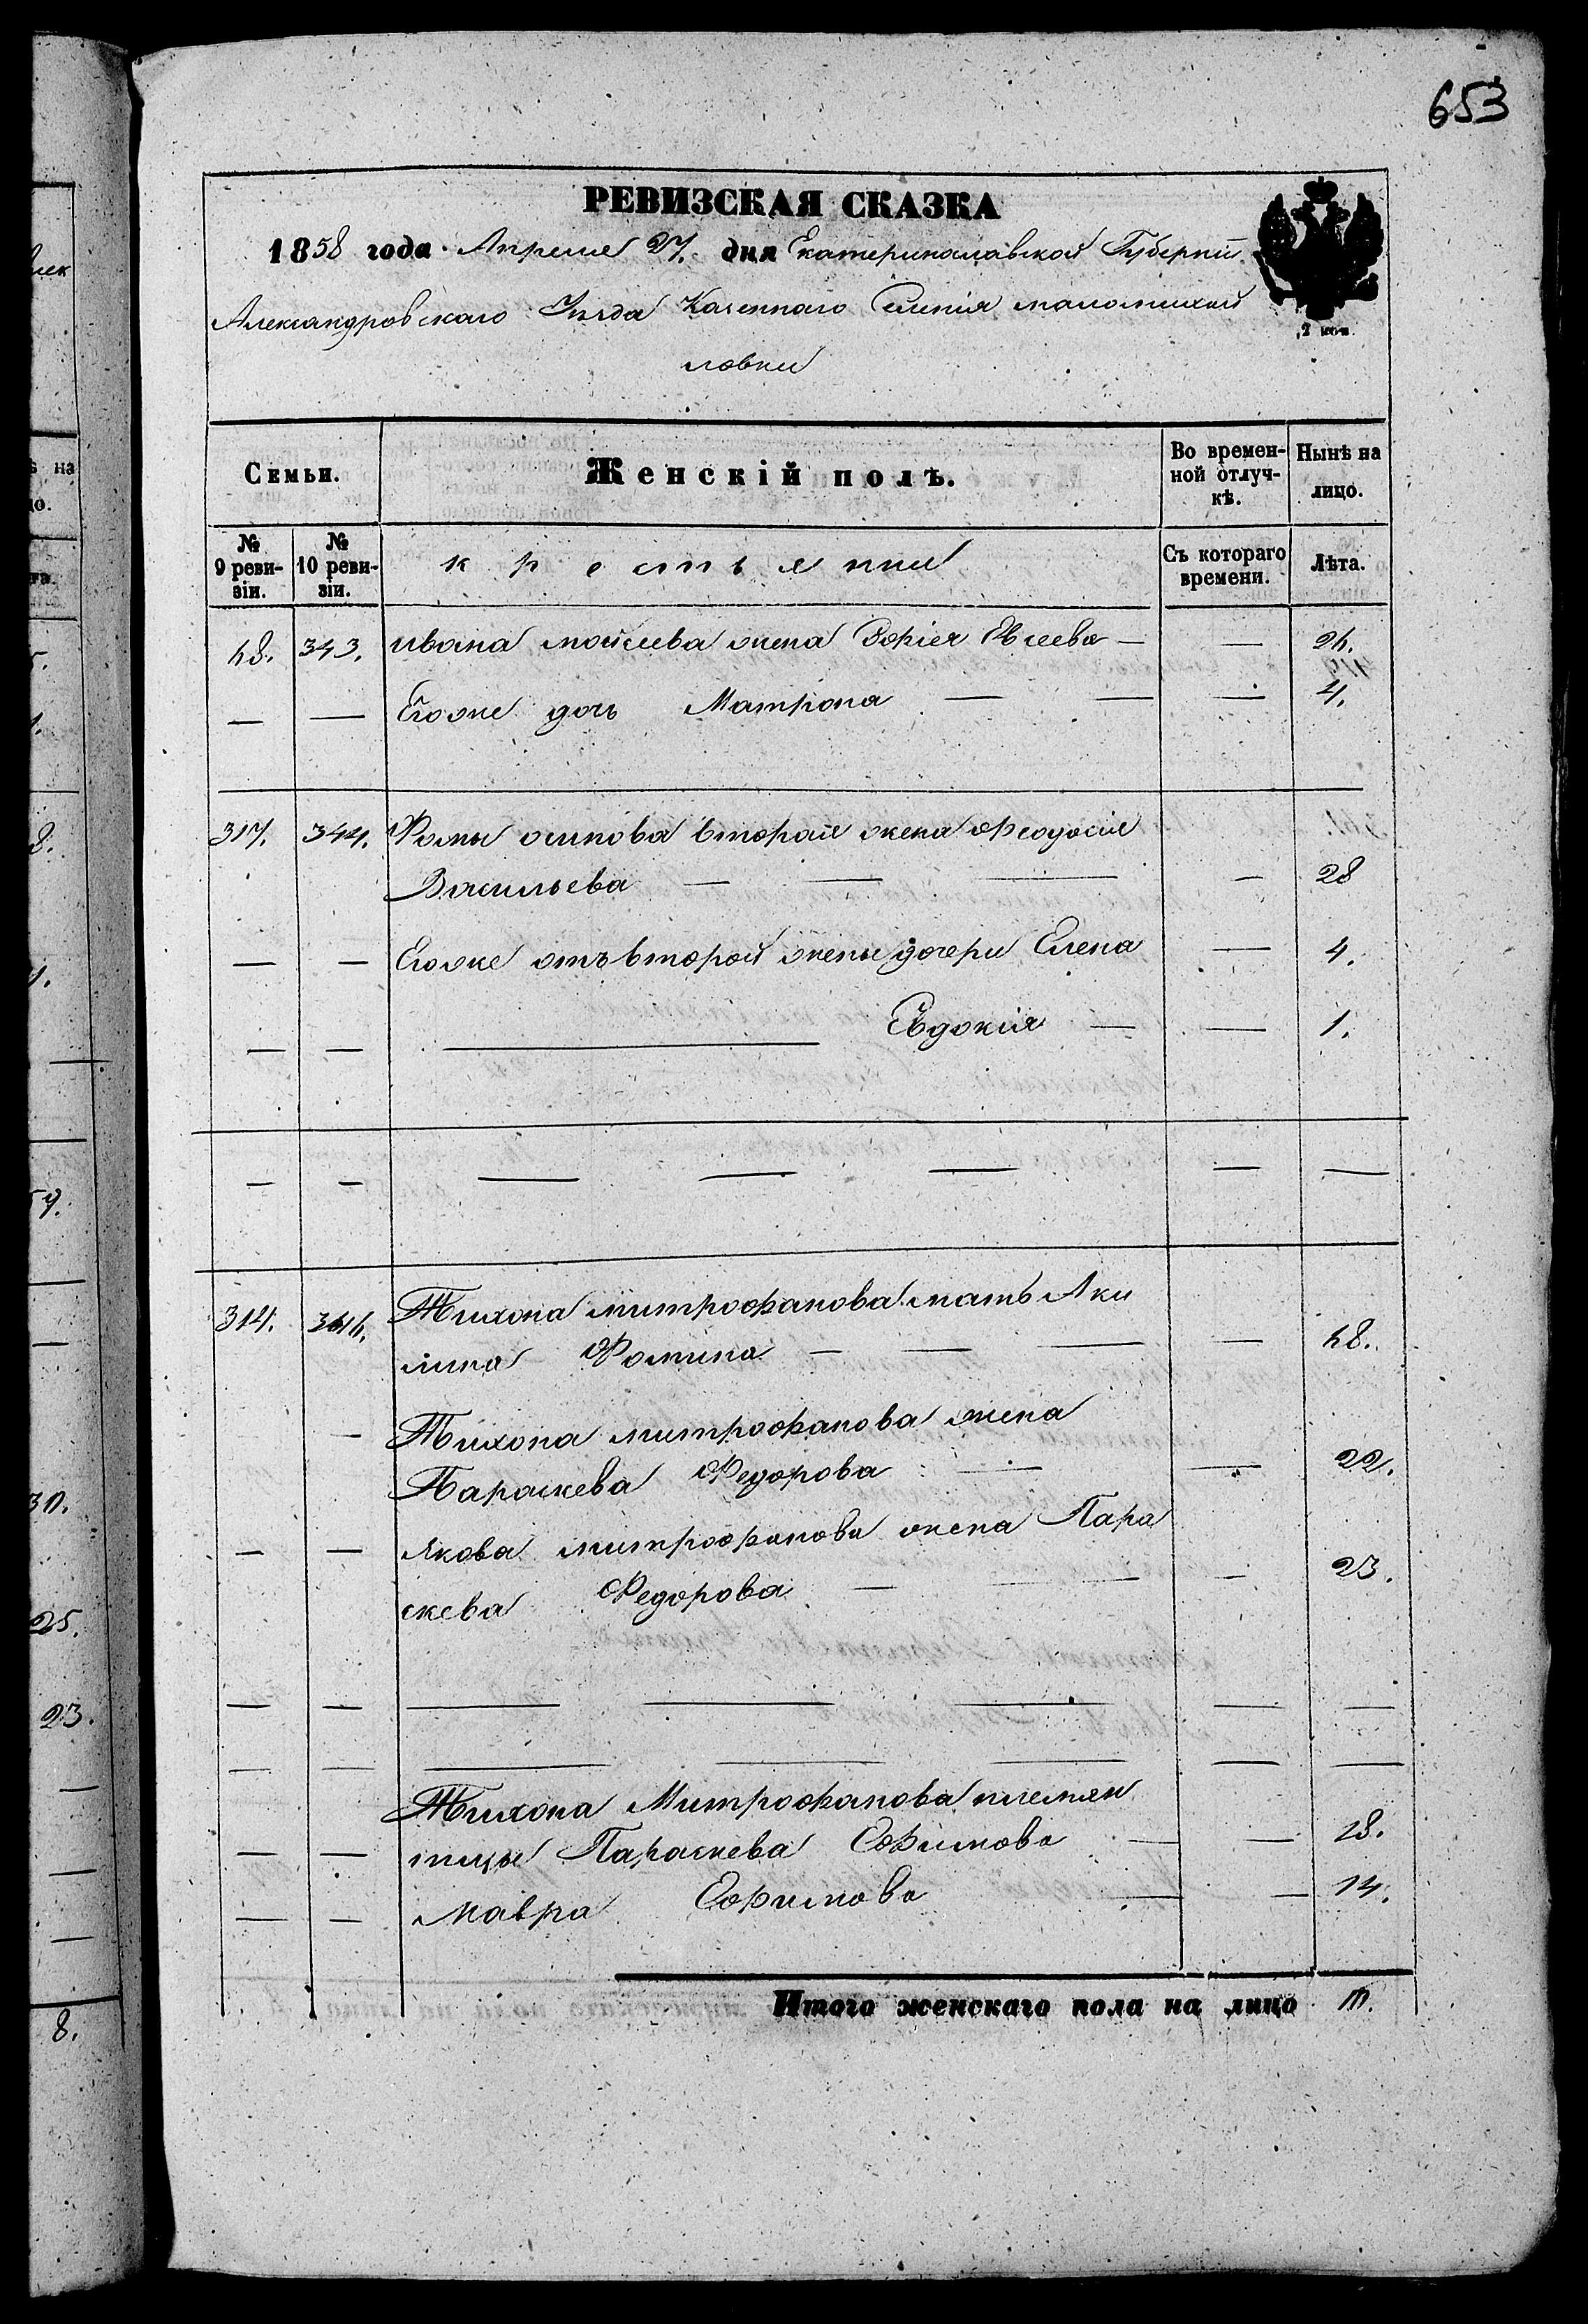 653
РЕВИЗСКАЯ СКАЗКА
1858 года Апреля 27. дня Екатеринославской Губерніи
Александровскаго Уѣзда Казеннаго Селенія маломихай
ловки
Семьи. Женскій полъ. Во времен-ной отлуч-кѣ. Нынѣ на лицо.
№ 9 реви-зіи. № 10 реви-зіи. крестьянки Съ котораго времени. Лѣта.
48. 343. ивана мойсеева жена Софія Евсеева — — 24.
— — Егоже дочь Матрона — — — 4.
317. 344. Фомы осипова вторая жена Феодосія
Васильева — — — — 28
— — Егоже отъ второй жены дочери Елена — 4.
— — — Евдокія — — 1.
— — — — — — —
314. Тихона митрофанова мать Аки
лина Фомина — — — — 48.
— Тихона митрофанова жена
Параскева Федорова — — 22.
— — Якова митрофанова жена Пара
скева Федорова — — — 23.
— — — — — — —
— — — — — — —
Тихона Митрофанова племян
— — ницы Параскева Ефимова — — 18.
— — мавра Ефимова — — 14.
Итого женскаго пола на лицо